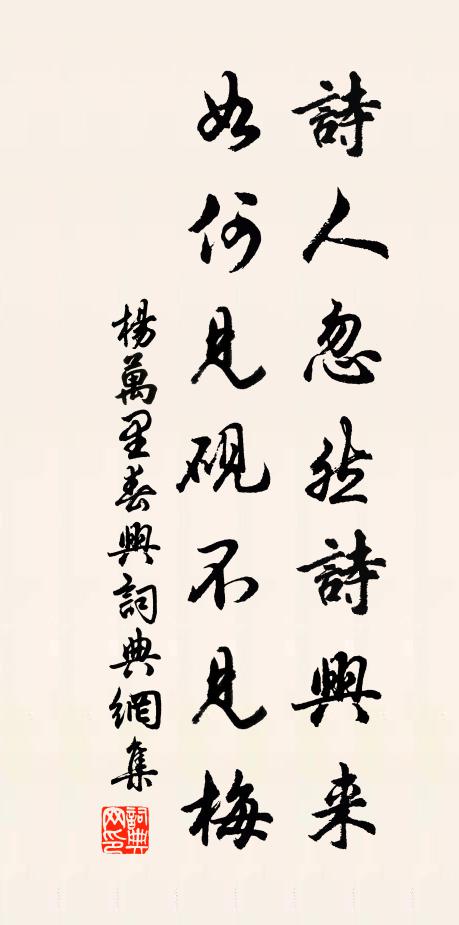 詩人忽然詩興来
如何見硯不見梅
楊萬里春興詞典網集
詞典網印